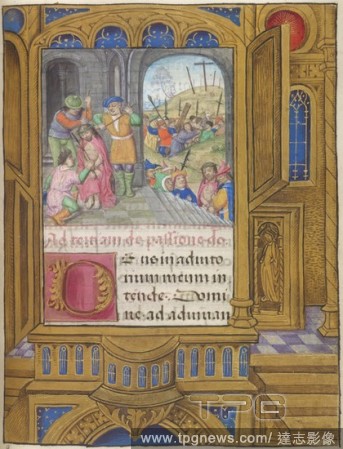 Ad tertiam de passione do
Eus in adiuto
rium meum in
tende. Domi
ne ad adiuuan
TPG
www.tpgnews.com/ 達志影像